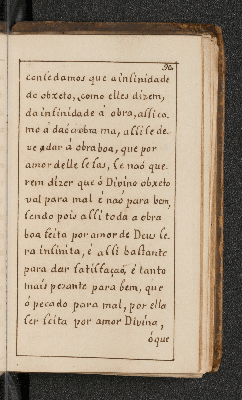 concedamos que a infinidade
do obxeto, como elles dizem,
da infinidade á obra, assi co-
mo a dá á obra má, assi se de-
ve a dar á obra boa, que por
amor delle se fas, se naõ que-
rem dizer que ó Divino obxeto
val para mal é naõ para bem,
sendo pois assi toda a obra
boa feita por amor de Deus se-
ra infinita, é assi bastante
para dar satissaçaõ, é tanto
mais pezante para bem, que
ó pecado para mal, por ella
ser feita por amor Divino,
óque